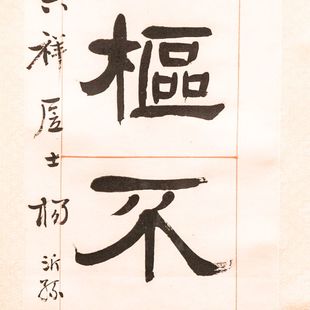 樞不
祥居士楊沂孫